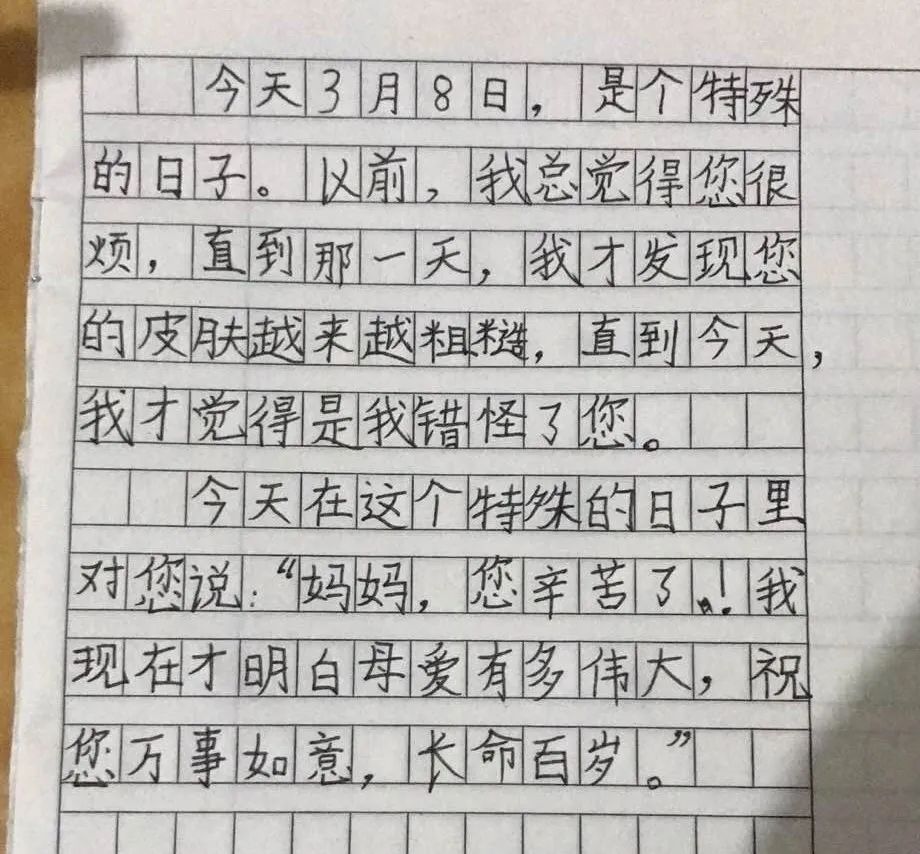 今天3月8日，是个特殊
的日子。以前，我总觉得您很
烦，直到那一天，我才发现您
的皮肤越来越粗糙，直到今天，
我才觉得是我错怪了您。
今天在这个特殊的日子里
对您说：“妈妈，您辛苦了！我
现在才明白母爱有多伟大，祝
您万事如意，长命百岁。”